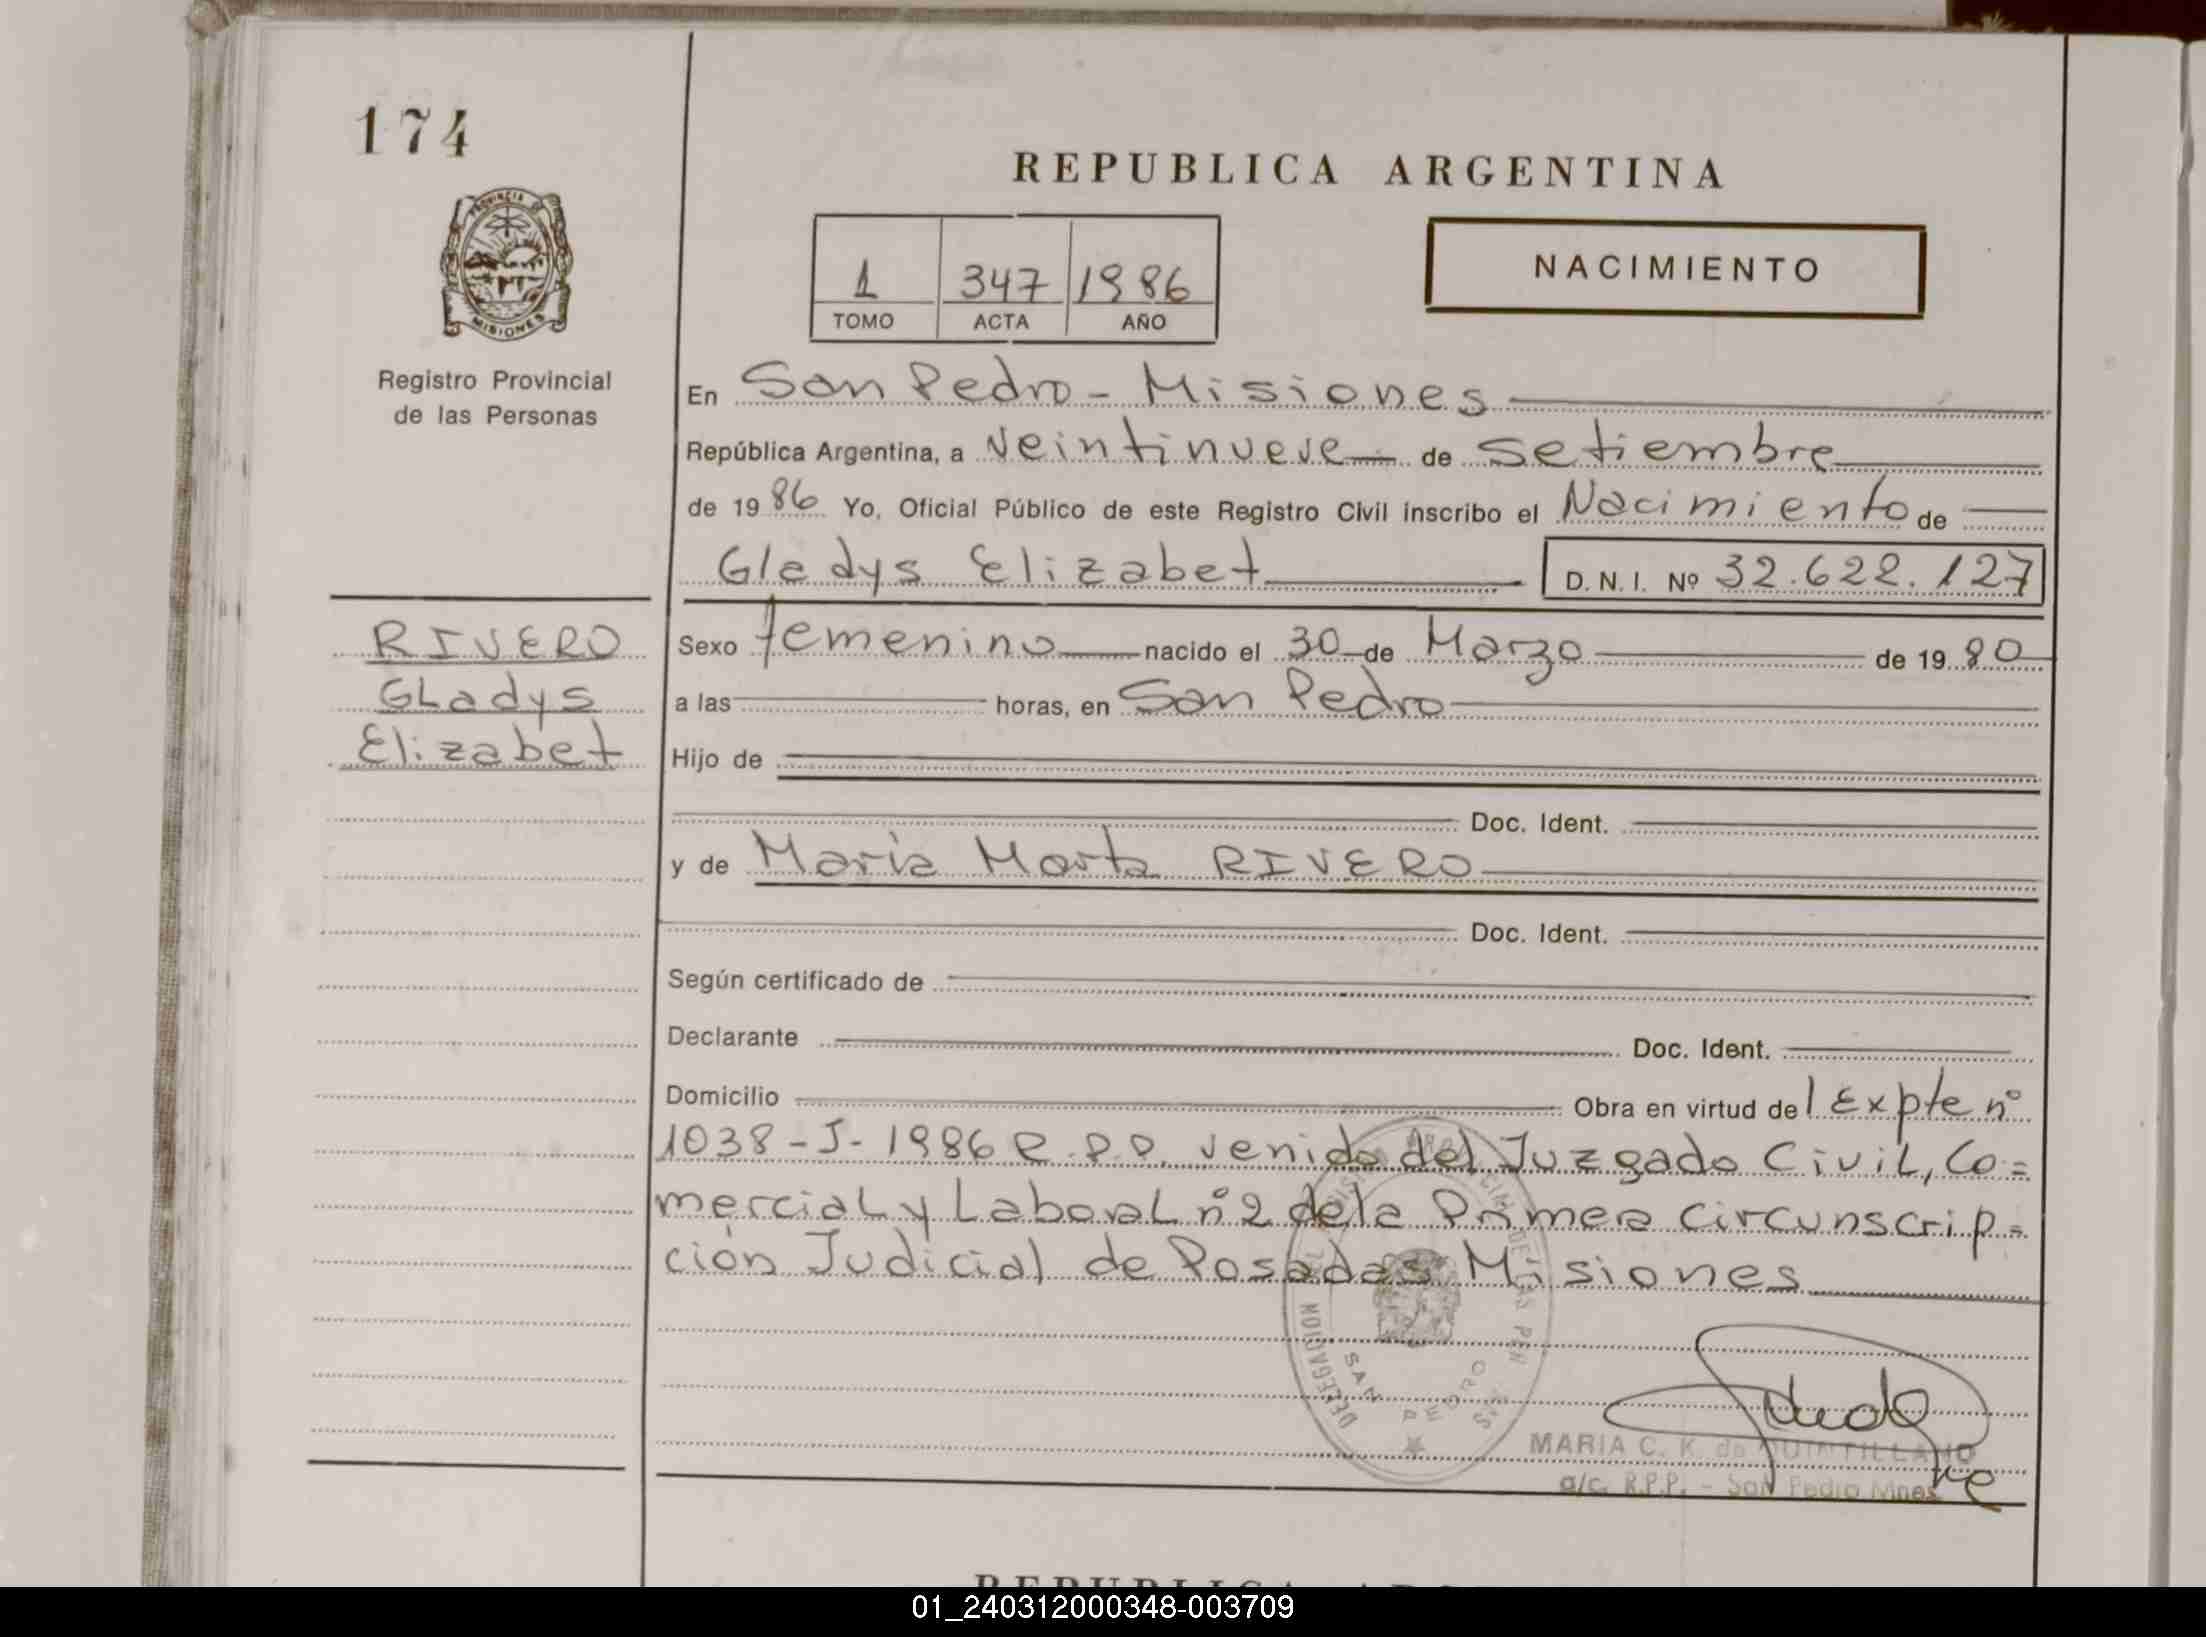 174
PROVINCIA DE
MISIONES
Registro Provincial
de las Personas
REPUBLICA ARGENTINA
1 347 1986
TOMO ACTA AÑO
NACIMIENTO
En San Pedro - Misiones
República Argentina, a veintinueve de setiembre
de 1986 Yo, Oficial Público de este Registro Civil inscribo el Nacimiento de
Gladys Elizabet D. N. I. Nº 32.622.127
RIVERO
Gladys
Elizabet
Sexo femenino nacido el 30 de Marzo de 1980
a las horas, en San Pedro
Hijo de
Doc. Ident.
y de Maria Marta RIVERO
Doc. Ident.
Según certificado de
Declarante Doc. Ident.
Domicilio Obra en virtud del Expte nº
1038-J-1986 R.P.P. venido del Juzgado Civil, Co=
mercial y Laboral nº 2 de la Primera Circunscrip=
ción Judicial de Posadas Misiones
DELEGACION
SAN PEDRO
MARIA C. K. de QUINTILLANO
a/c. R.P.P. - San Pedro Mnes
REPUBLICA
01_240312000348-003709